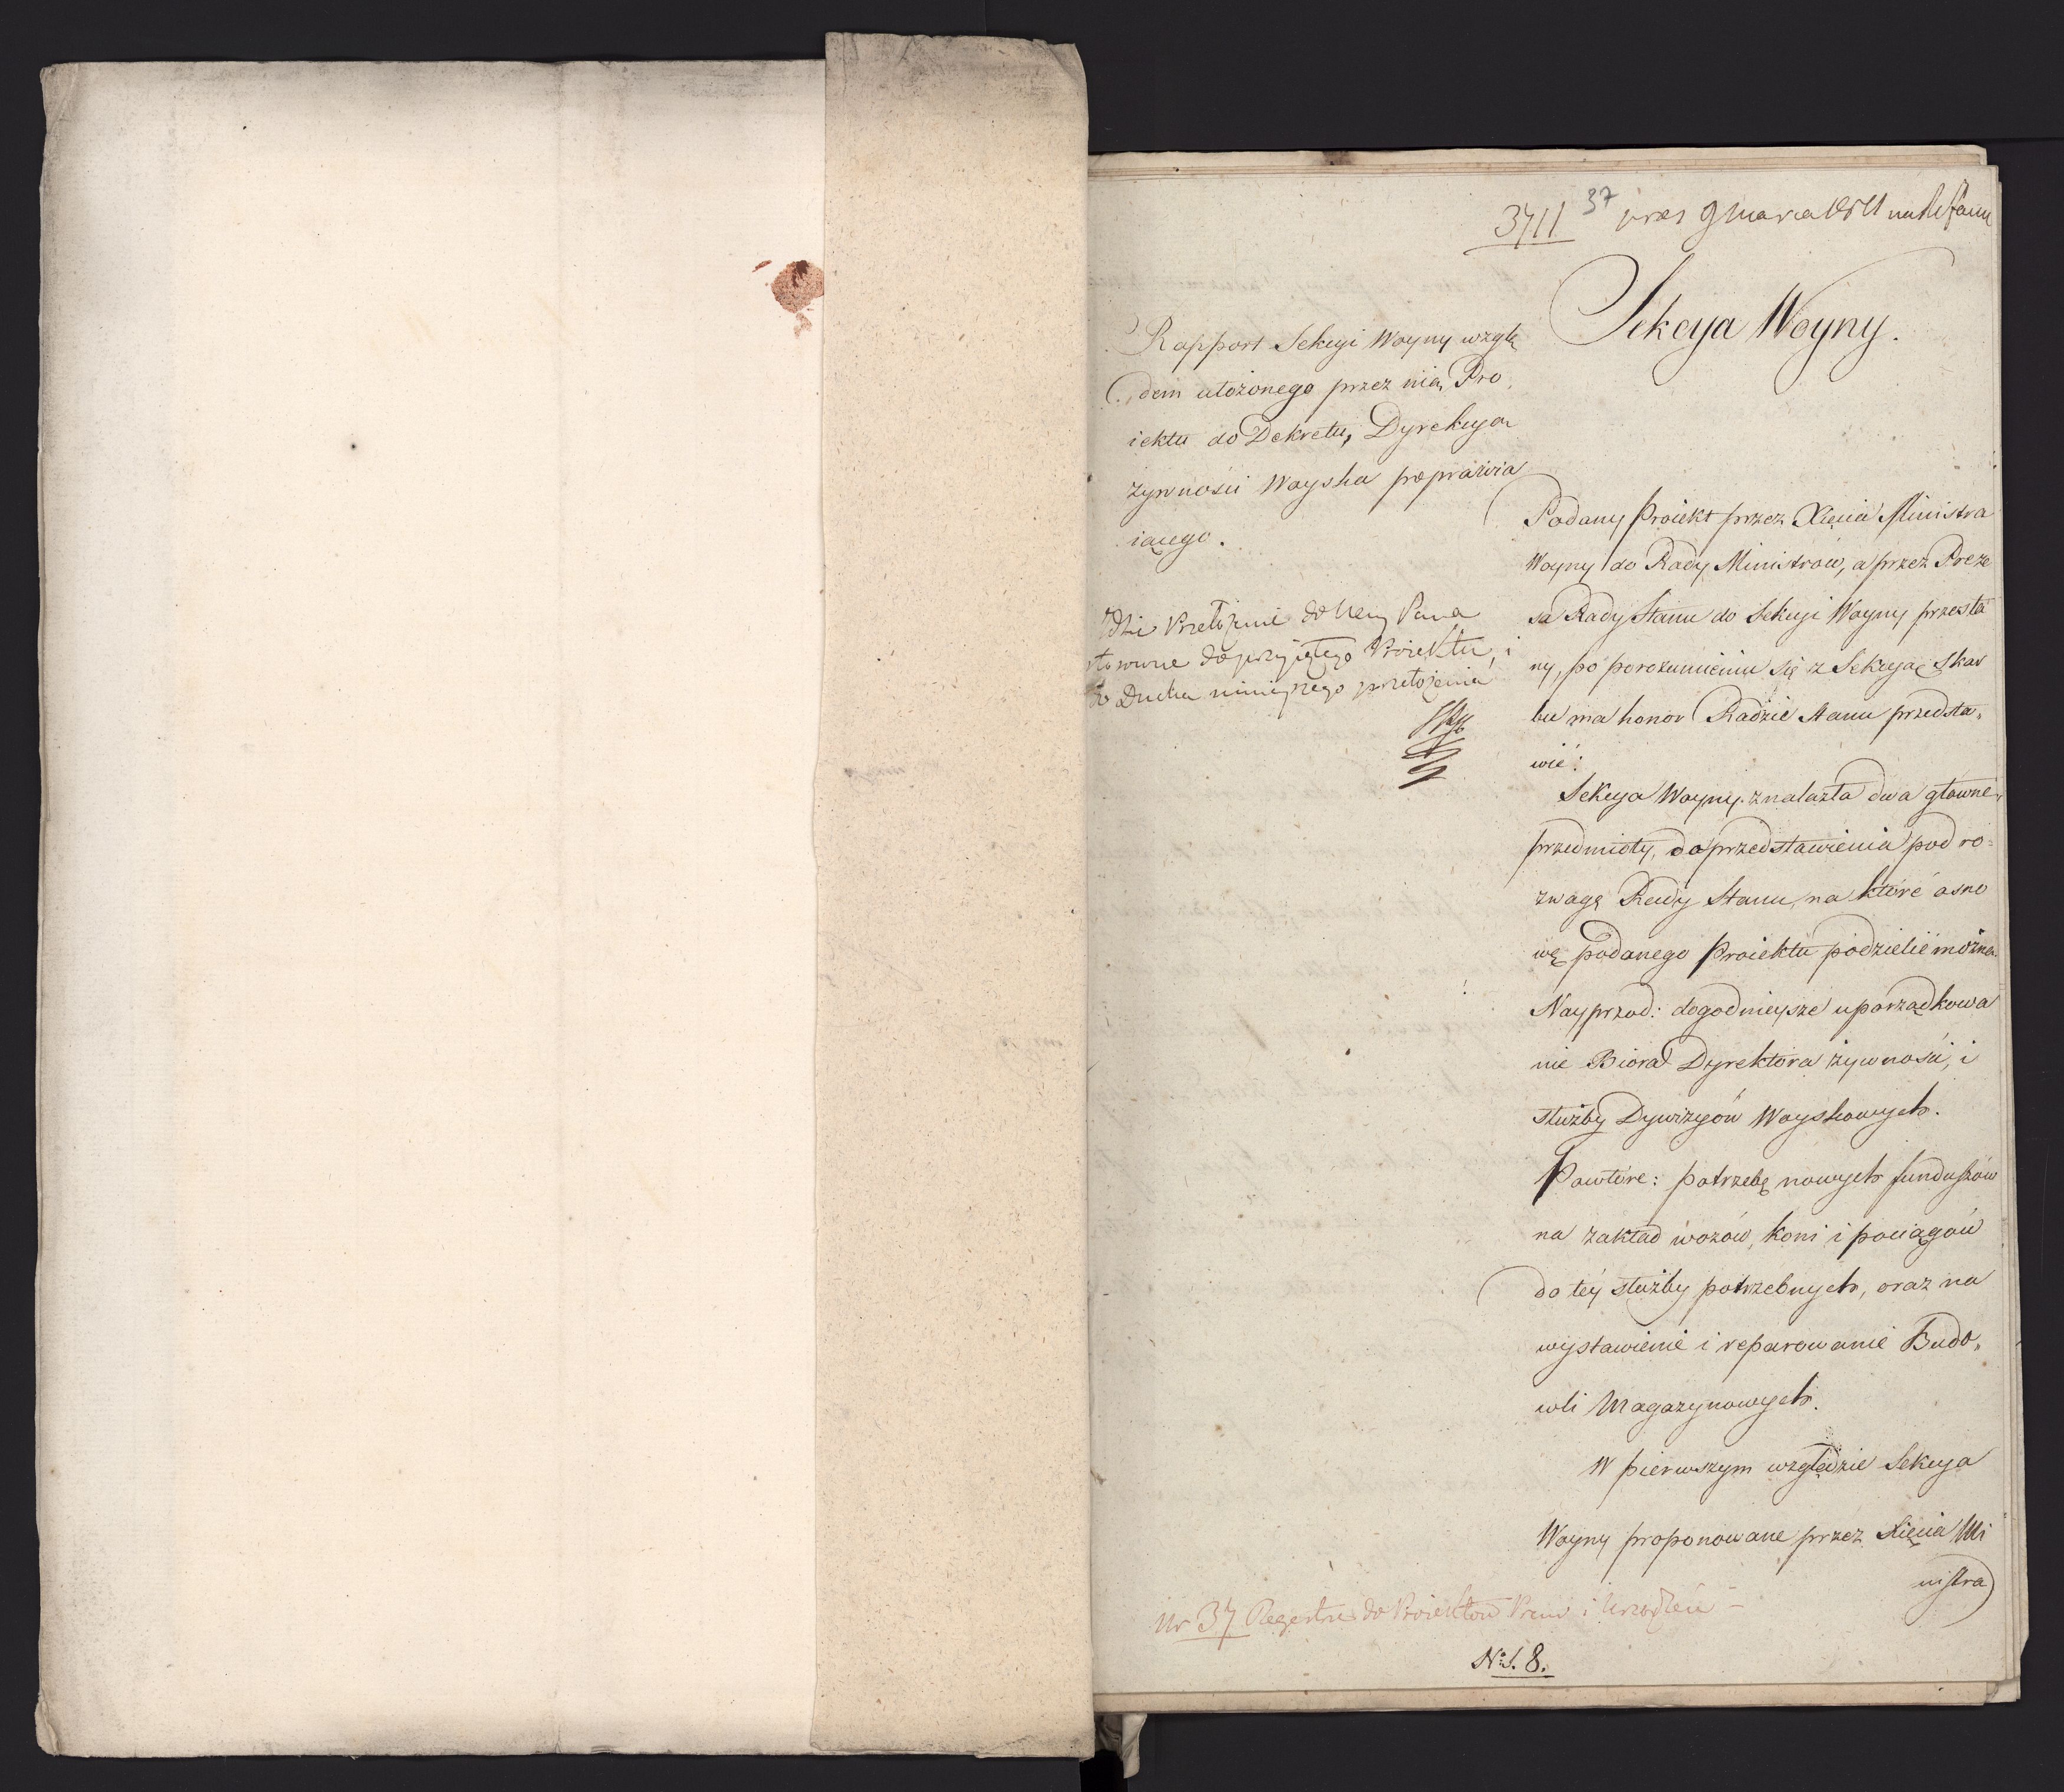 3711 37 prez 9 Marca 1811 na Ses Stanu
Sekcya Woyny.
Rapport Sekcyi Woyny wzglę
dem ułożonego przez nią Pro
iektu do Dekretu, Dyrekcyą
żywności Woyska poprawia
iącego.
Przełożenie do Nay Pana
stosowne do przyjętego Proiektu, i
Ducha ninieyszego przełożenia
Podany Proiekt przez Xięcia Ministra
Woyny do Rady Ministrów, a przez Preze
sa Rady Stanu do Sekcyi Woyny przesła
ny, po porozumieniu się z Sekcyą Skar
bu ma honor Radzie Stanu przedsta„
wić:
Sekcya Woyny znalazła dwa główne
przedmioty, do przedstawienia pod ro=
zwagę Rady Stanu, na które osno
wę podanego Proiektu podzielić można.
Nayprzod: dogodnieysze uporządkowa
nie Biora Dyrektora żywności, i
służby Dywizyów Woyskowych.
Powtóre: potrzebę nowych funduszów
na zakład wozów, koni i pociągów
do téy służby potrzebnych, oraz na
wystawienie i reparowanie Budo„
wli Magazynowych.
W pierwszym względzie Sekcya
Woyny proponowane przez Xięcia Mi
nistra
Nr 37 Regestru do Proiektow Praw i Urządzeń -
No. 8.